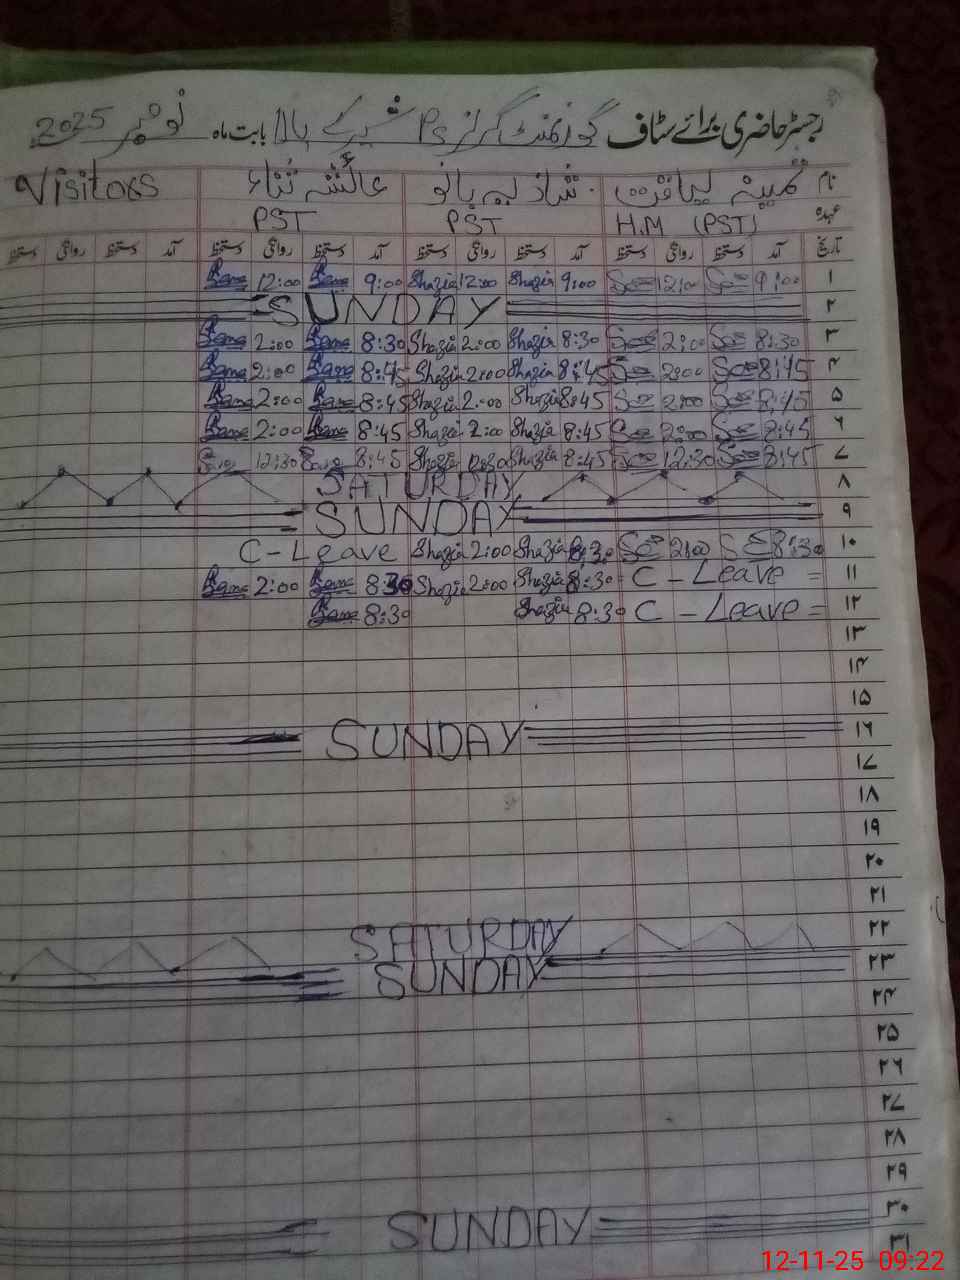 رجسٹر حاضری برائے سٹاف گورنمنٹ گرلز PS شیر کے بالا بابت ماہ نومبر 2025
نام ثمینہ لیاقت شازیہ بانو عائشہ ثناء Visitors
عہدہ H.M (PST) PST PST
تاریخ آمد دستخط روانگی دستخط آمد دستخط روانگی دستخط آمد دستخط روانگی دستخط آمد دستخط روانگی دستخط
۱ 9:00 12:00 9:00 Shazia 12:00 Shazia 9:00 12:00
۲ SUNDAY
۳ 8:30 2:00 8:30 Shazia 2:00 Shazia 8:30 2:00
۴ 8:45 2:00 8:45 Shazia 2:00 Shazia 8:45 2:00
۵ 8:45 2:00 8:45 Shazia 2:00 Shazia 8:45 2:00
۶ 8:45 2:00 8:45 Shazia 2:00 Shazia 8:45 2:00
۷ 8:45 12:30 8:45 Shazia Shazia 8:45 12:30
۸ SATURDAY
۹ SUNDAY
۱۰ 8:30 2:00 8:30 Shazia 2:00 Shazia C - Leave
۱۱ C - Leave = 8:30 Shazia 2:00 Shazia 8:30 2:00
۱۲ C - Leave = 8:30 Shazia 8:30
۱۳
۱۴
۱۵
۱۶ SUNDAY
۱۷
۱۸
۱۹
۲۰
۲۱
۲۲ SATURDAY
۲۳ SUNDAY
۲۴
۲۵
۲۶
۲۷
۲۸
۲۹
۳۰ SUNDAY
۳۱
12-11-25 09:22